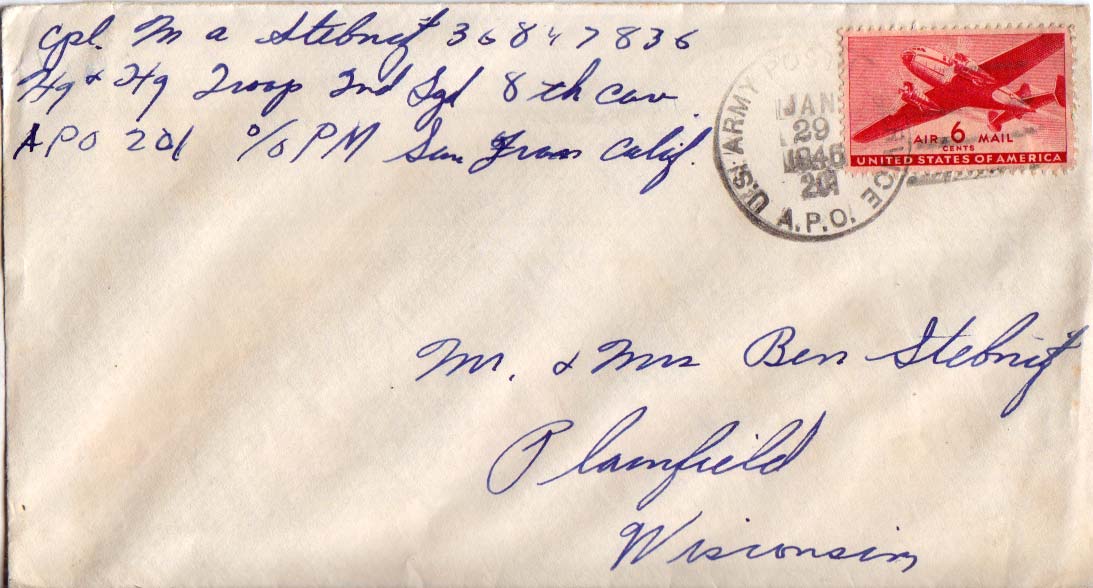 Cpl. M A Stebnitz 36847836
Hq & Hq Troop 2nd Sqd 8th Cav
APO 201 c/o PM San Fran Calif.
U.S. ARMY POSTAL SERVICE
JAN
29
1946
201
A.P.O.
AIR 6 MAIL
CENTS
UNITED STATES OF AMERICA
Mr. & Mrs Ben Stebnitz
Plainfield
Wisconsin